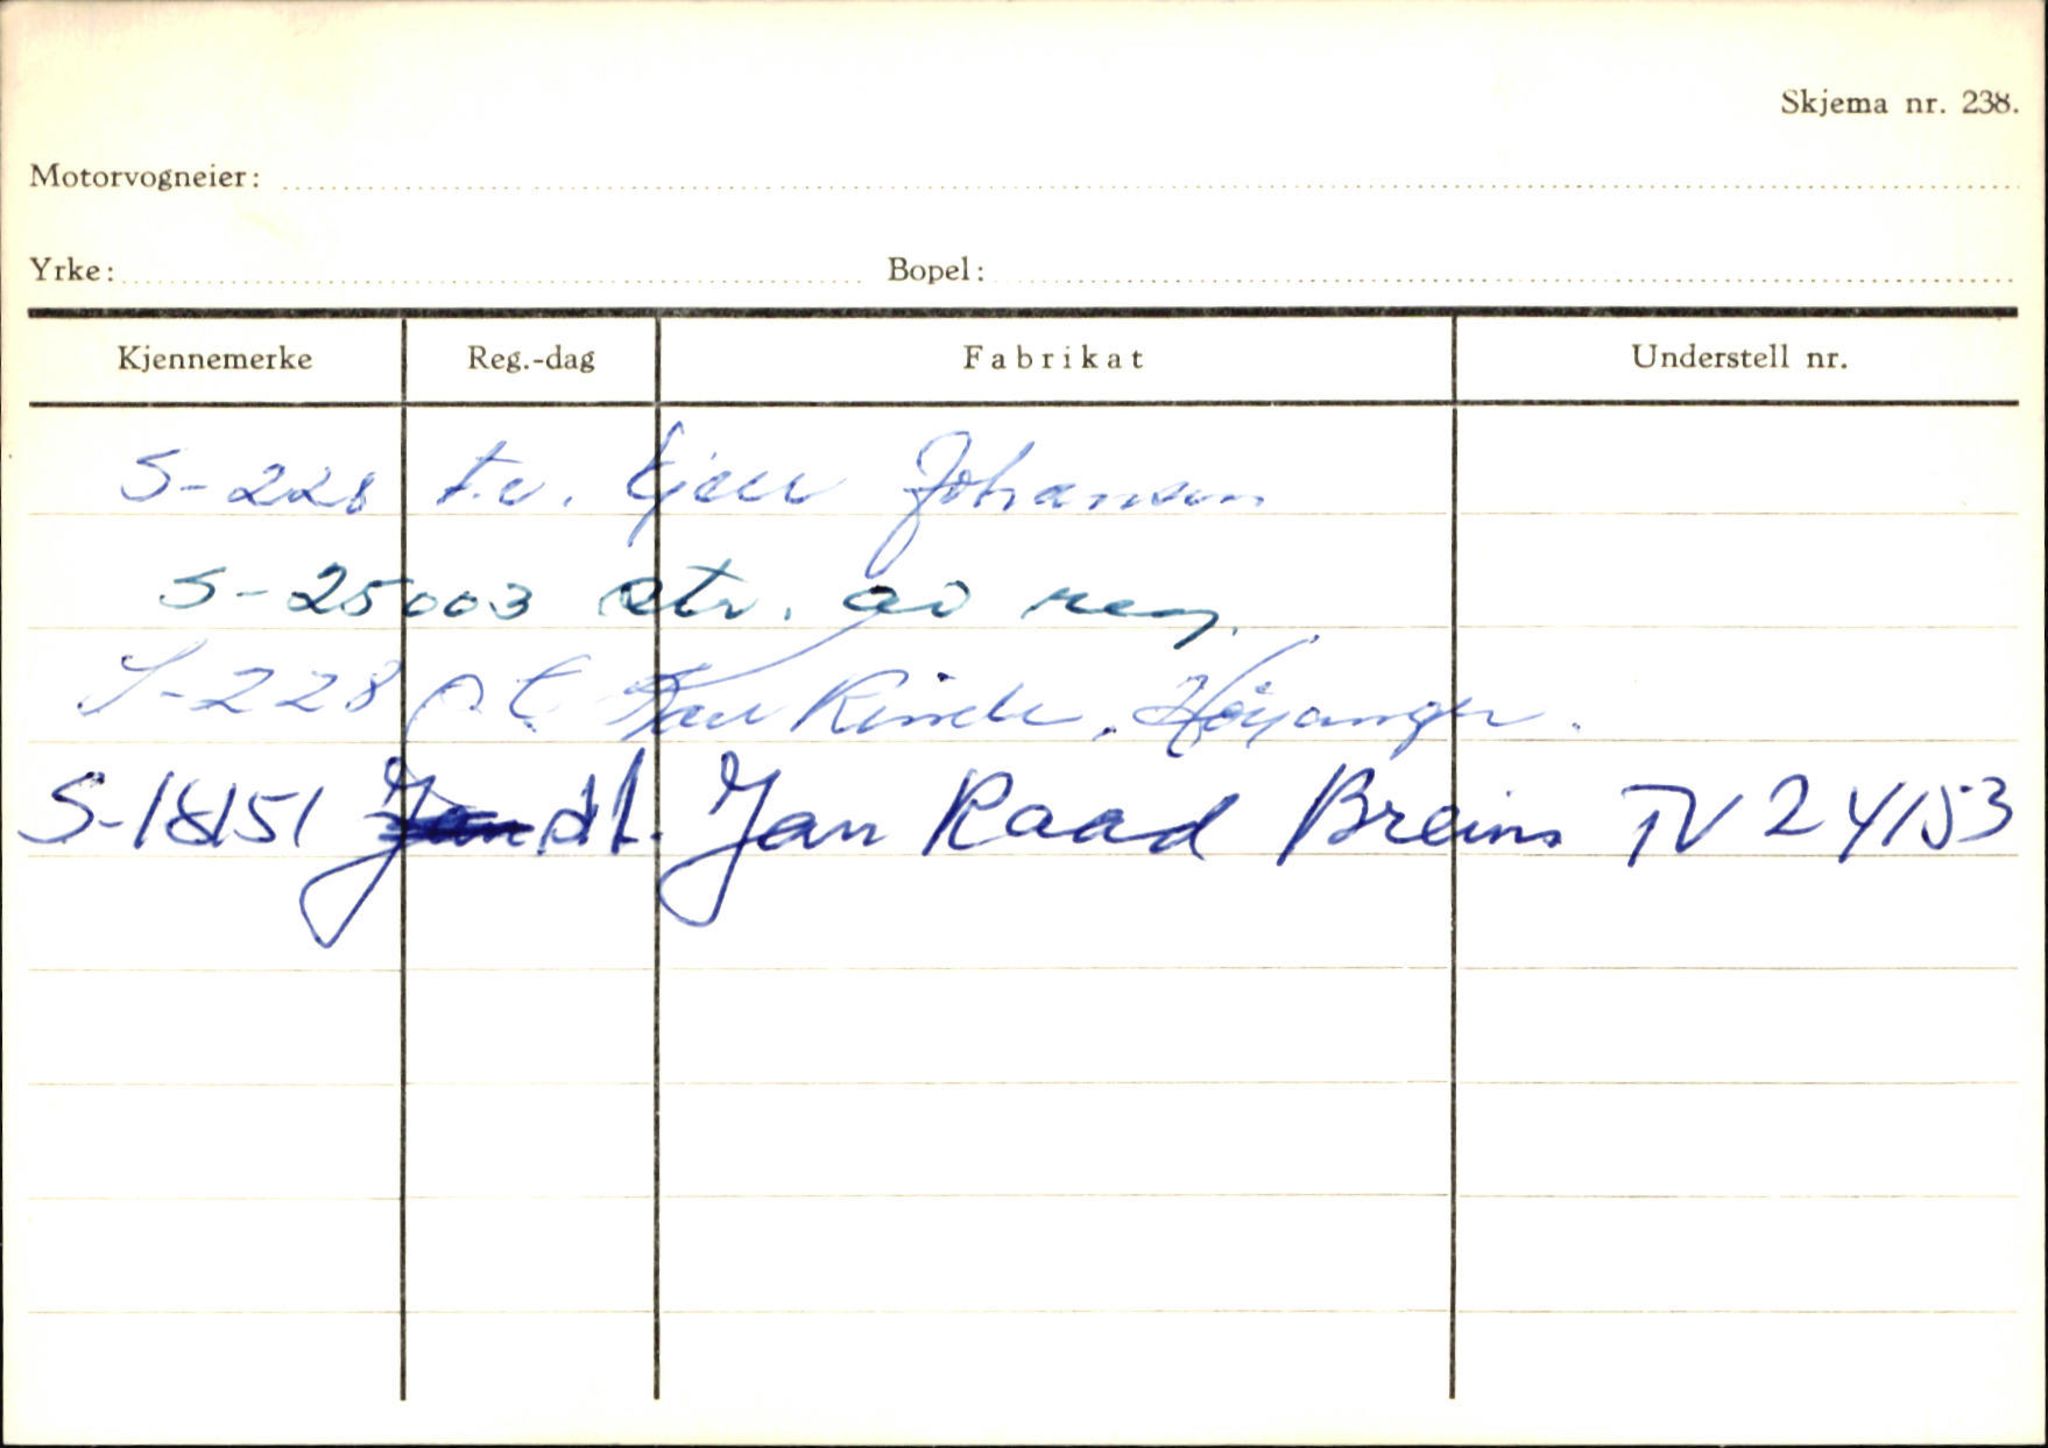 Skjema nr. 238.
Motorvogneier:
Yrke: Bopel:
Kjennemerke Reg.-dag Fabrikat Understell nr.
S-228 t.v. Kjell Johansen
S-25003 str. av reg.
S-228 Kåre Rinde, Høyanger.
S-18151 dt. Jan Raad Breim TV 24153